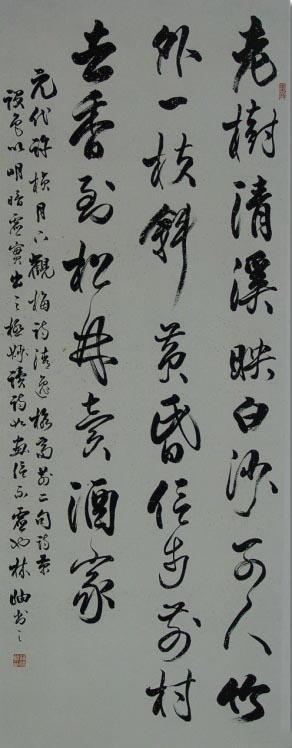 老樹清溪映白沙可人竹
外一枝斜黃昏信步前村
去香到松林賣酒家
元代許楨月下觀梅詩清逸格高前二句詩景
設色以明暗虛實出之極妙讀詩如畫信不虛也林岫書之